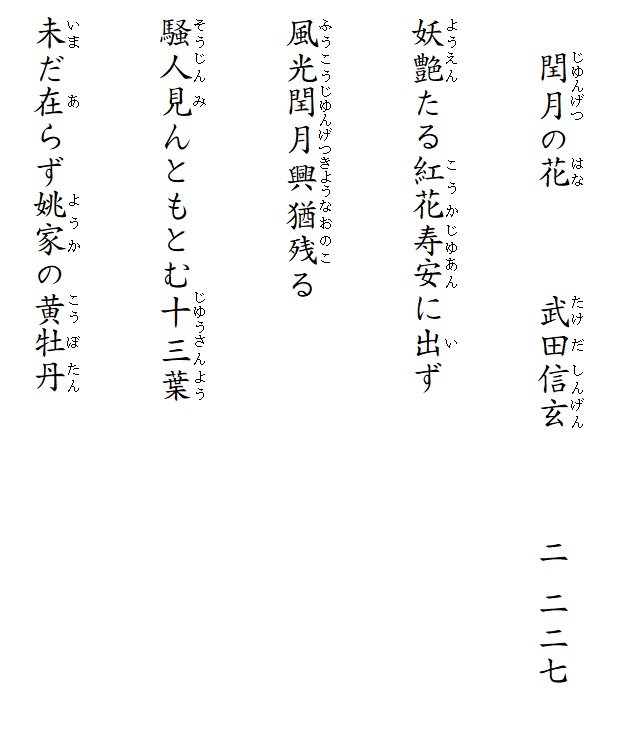 閏月の花 武田信玄 二 二二七
妖艶たる紅花寿安に出ず
風光閏月興猶残る
騒人見んともとむ十三葉
未だ在らず姚家の黄牡丹